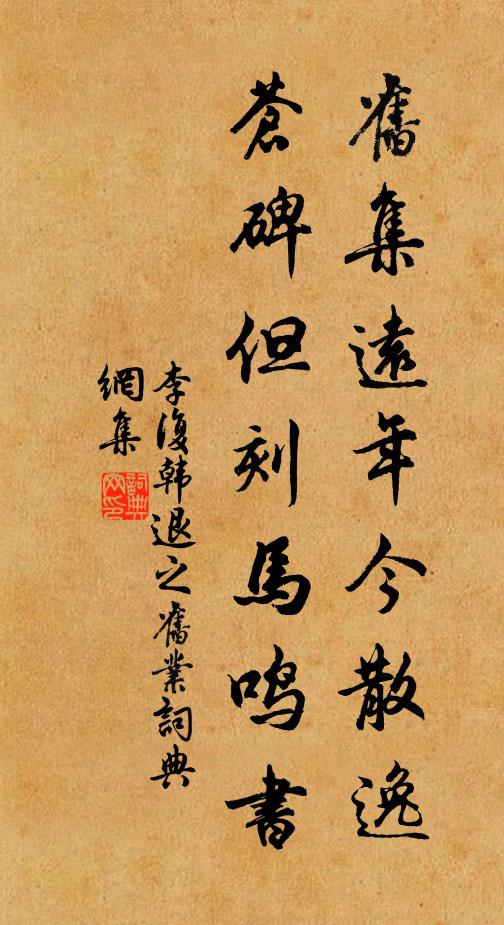 舊集遠年今散逸
蒼碑但刻馬鳴書
李復韩退之舊業詞典
網集
詞典网印